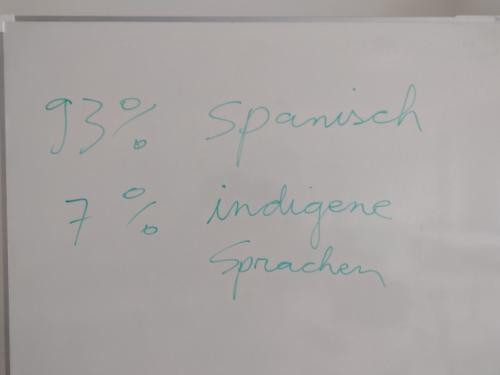 93% Spanisch
7% indigene
Sprachen